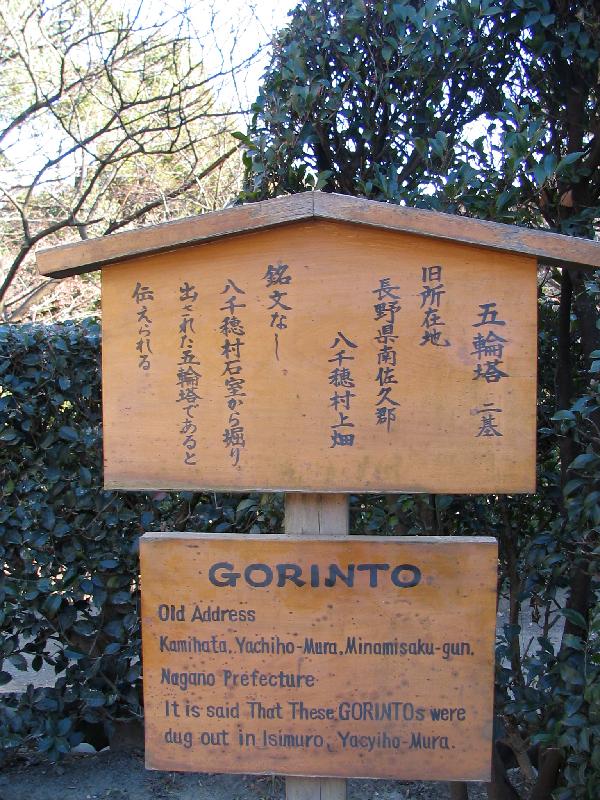 五輪塔 二基
旧所在地
長野県南佐久郡
八千穂村上畑
銘文なし
八千穂村石室から堀り
出された五輪塔であると
伝えられる
GORINTO
Old Address
Kamihata, Yachiho-Mura, Minamisaku-gun.
Nagano Prefecture
It is said That These GORINTOs were
dug out in Isimuro, Yacyiho-Mura.